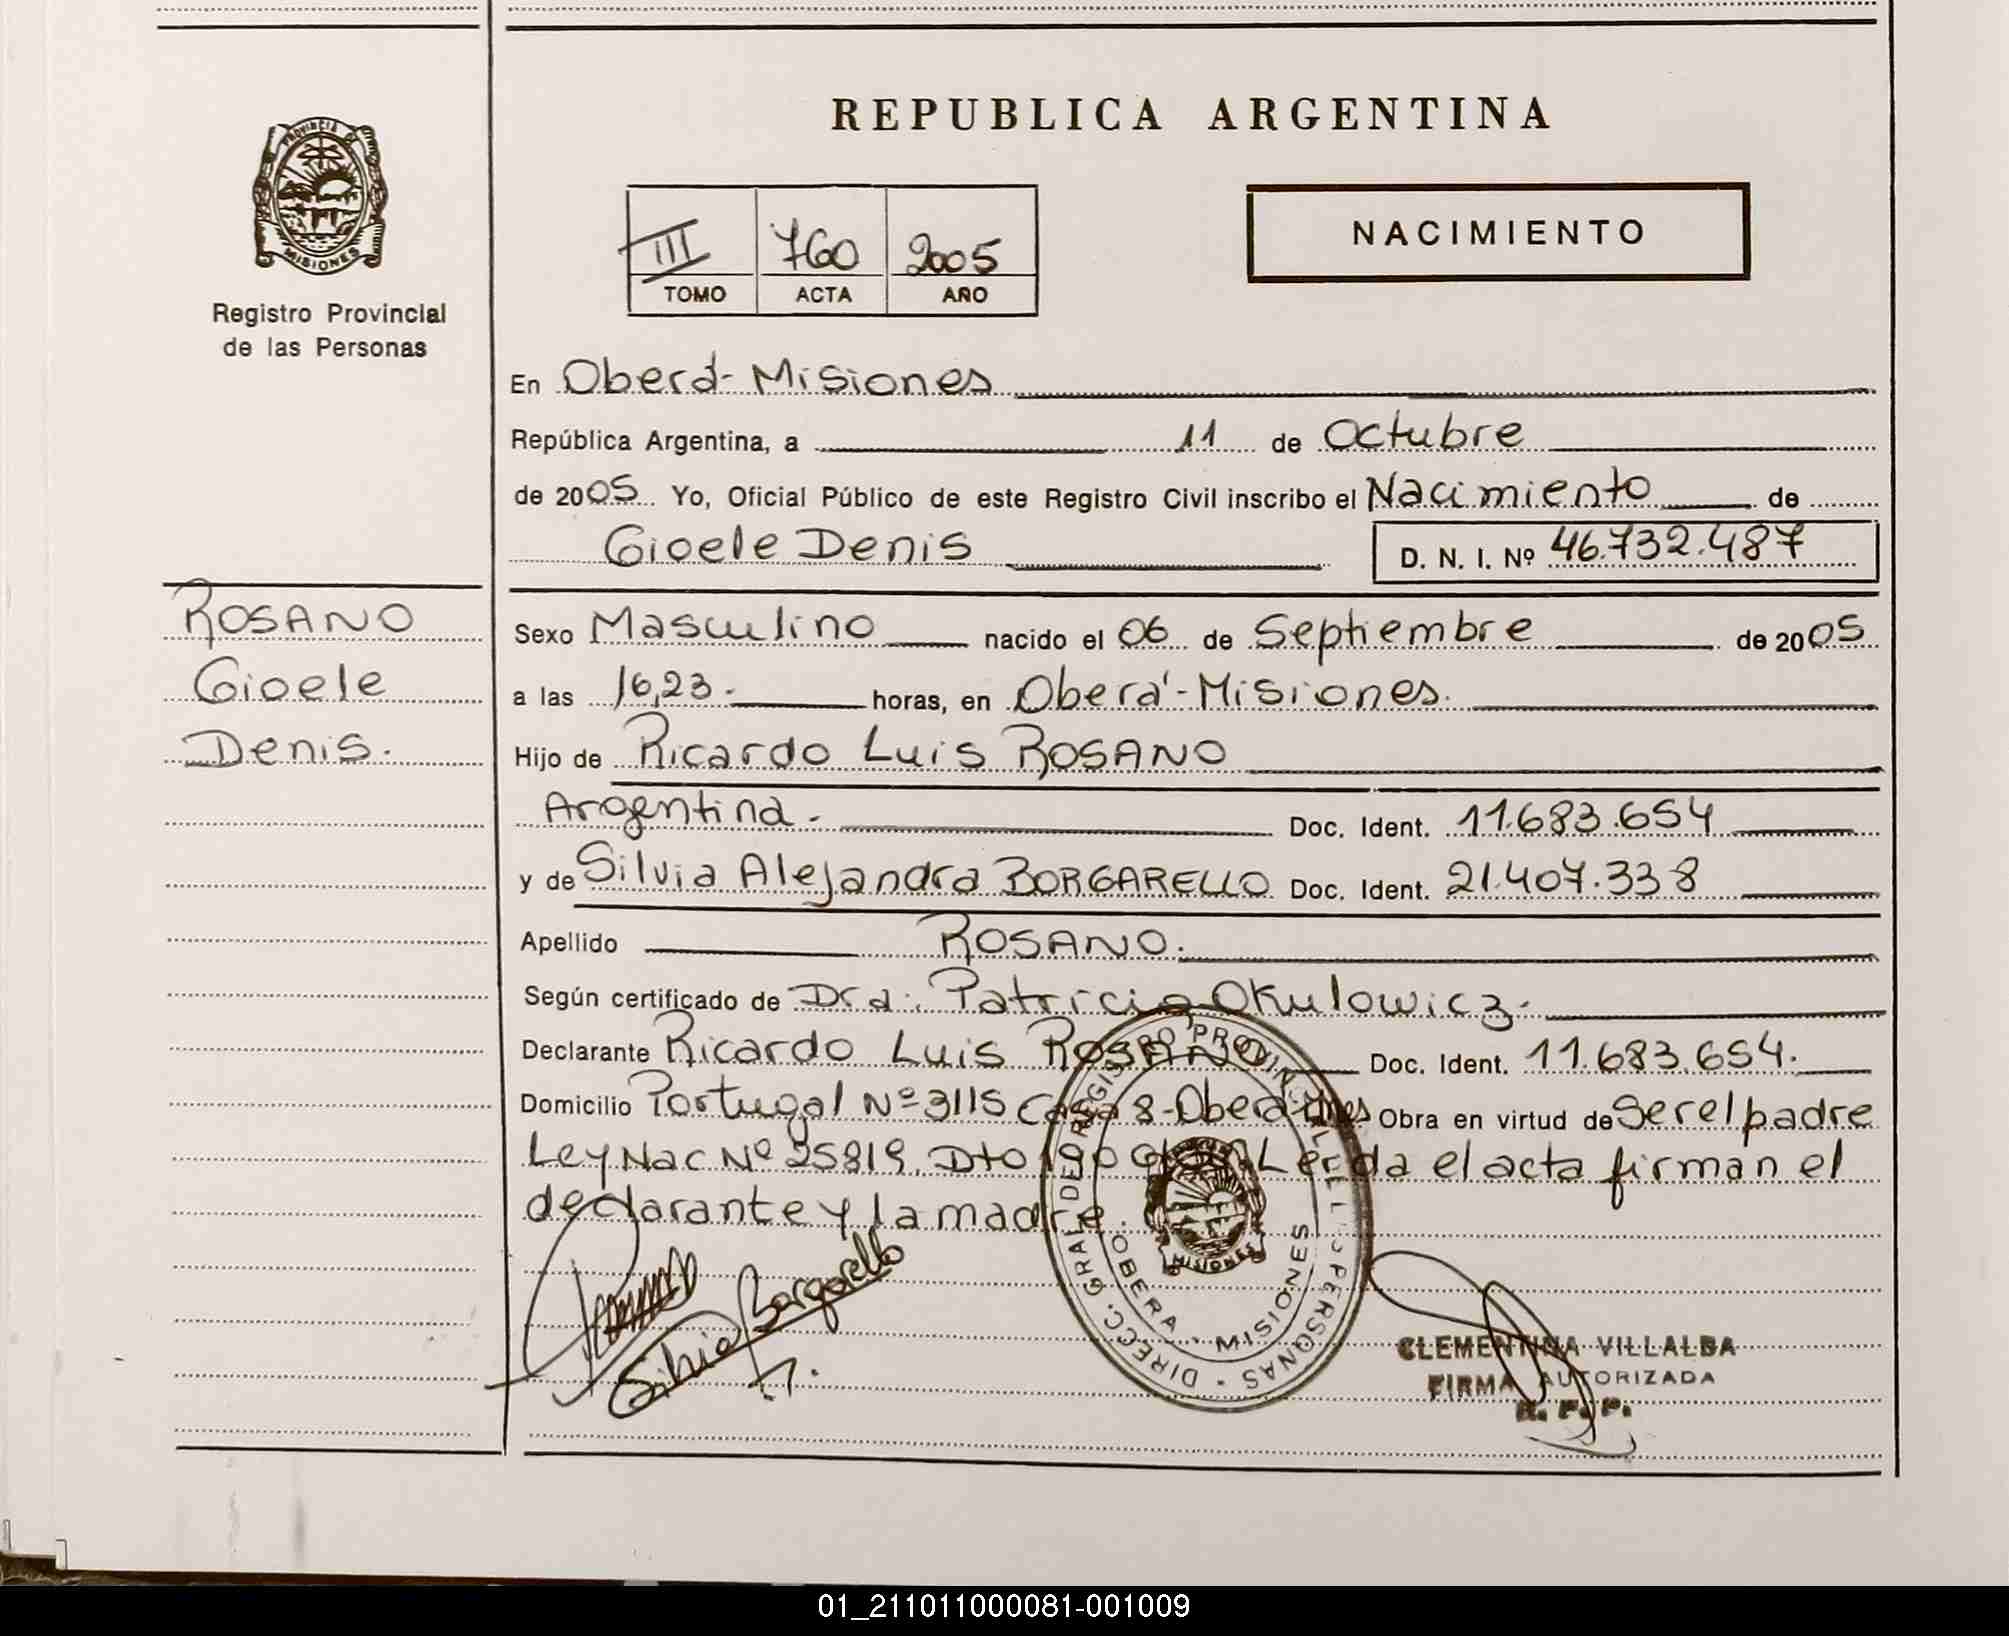 REPUBLICA ARGENTINA
PROVINCIA DE
MISIONES
Registro Provincial
de las Personas
III 760 2005
TOMO ACTA AÑO
NACIMIENTO
En Oberá - Misiones
República Argentina, a 11 de Octubre
de 2005 Yo, Oficial Público de este Registro Civil inscribo el Nacimiento de
Gioele Denis D. N. I. Nº 46.732.487
ROSANO
Gioele
Denis.
Sexo Masculino nacido el 06 de Septiembre de 2005
a las 16,23. horas, en Oberá - Misiones.
Hijo de Ricardo Luis ROSANO
Argentina. Doc. Ident. 11.683.654
y de Silvia Alejandra BORGARELLO Doc. Ident. 21.407.338
Apellido ROSANO.
Según certificado de Dra. Patricia Okulowicz.
Declarante Ricardo Luis ROSANO Doc. Ident. 11.683.654.
Domicilio Portugal Nº 3115 Casa 8 - Oberá Mnes Obra en virtud de ser el padre
Ley Nac Nº 25819. Dto Leida el acta firman el
declarante y la madre.
Silvia Borgarello
DIRECC. GRAL DE REGISTRO PROVINCIAL DE LAS PERSONAS
OBERA - MISIONES
MISIONES
CLEMENTINA VILLALBA
FIRMA AUTORIZADA
R. P. P.
01_211011000081-001009